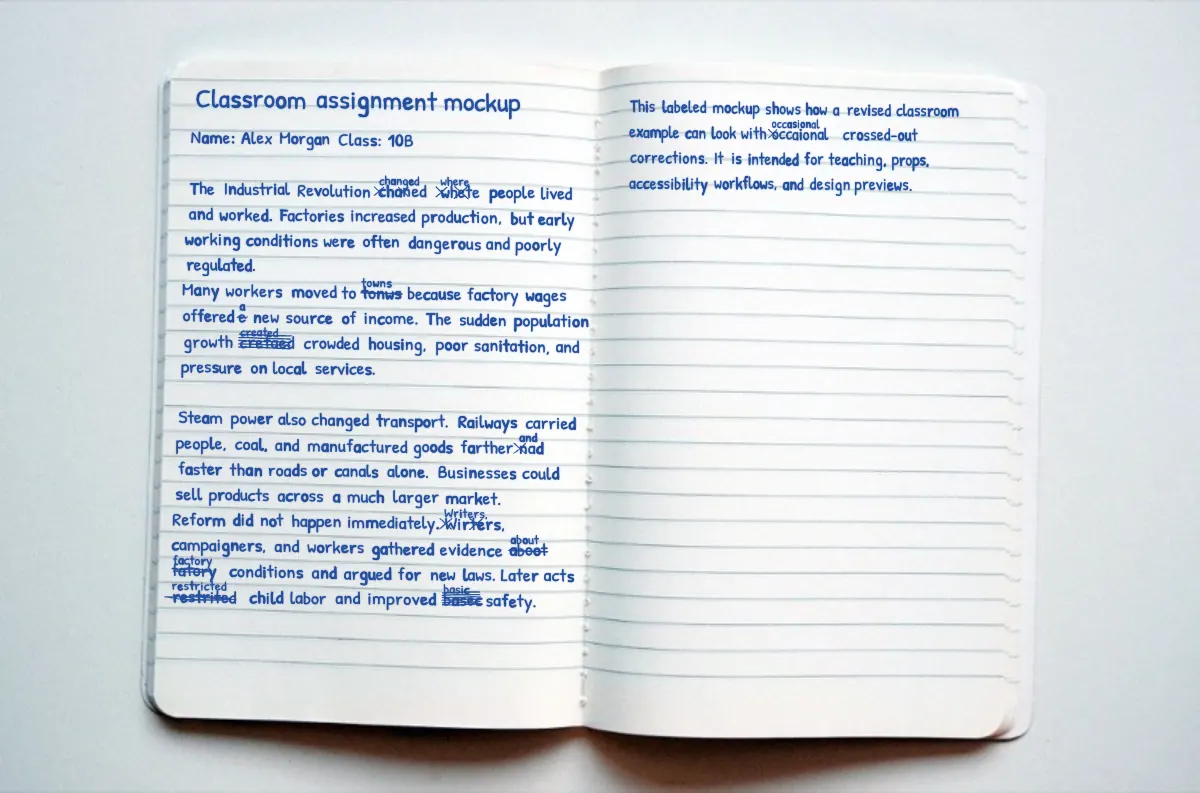 Classroom assignment mockup
Name: Alex Morgan Class: 10B
The Industrial Revolution chaned changed where people lived
and worked. Factories increased production, but early
working conditions were often dangerous and poorly
regulated.
Many workers moved to tonws towns because factory wages
offered e a new source of income. The sudden population
growth cretaed created crowded housing, poor sanitation, and
pressure on local services.
Steam power also changed transport. Railways carried
people, coal, and manufactured goods farther nad and
faster than roads or canals alone. Businesses could
sell products across a much larger market.
Reform did not happen immediately. Wirters, Writers,
campaigners, and workers gathered evidence aboot about
fatory factory conditions and argued for new laws. Later acts
restrited restricted child labor and improved basic safety.
This labeled mockup shows how a revised classroom
example can look with occaional occasional crossed-out
corrections. It is intended for teaching, props,
accessibility workflows, and design previews.